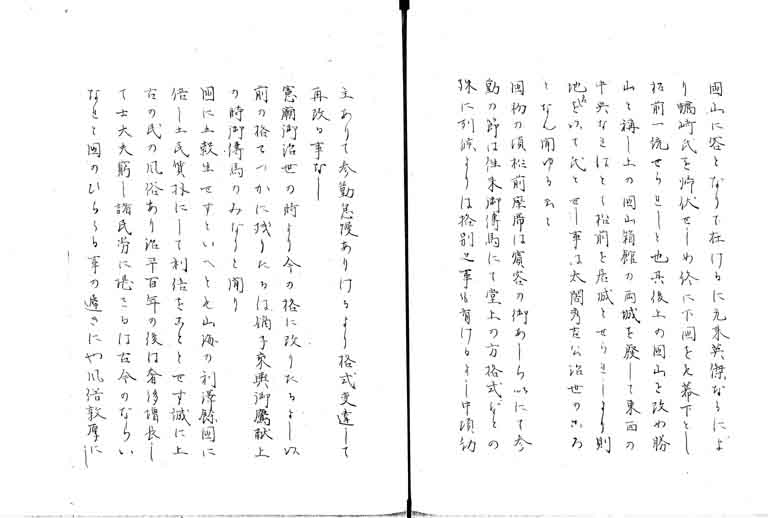 岡山に客となりて在けるに元来英傑なるによ
り蠣崎氏を帰伏せしめ終に下国をも幕下とし
松前一統せられしと也其後上の国山を改め勝
山と称し上の国山箱館の両城を廃して東西の
中央なれはとて松前を居城とせられしより則
地名を以て氏とせし事は太閤秀吉公治世のころ
となん聞ゆるかと
国初の頃松前座席は賓客の御あしらいにて参
勤の節は往来御傳馬にて堂上の方格式などの
殊に列渋よりは格別之事も有けるよし中頃幼
主ありて参勤怠慢ありけるより格式変違して
再改る事なし
憲廟御治世の時より今の格に改りたるよし以
前の格てつかに残りたるは嫡子乗輿御鷹献上
の時御傳馬のみなりと聞り
国に五穀生せすといへとも山海の利澤餘国に
倍し土民質朴にして利倍をことゝせす誠に上
古の民の風俗あり治平百年の後は奢侈増長し
て士大夫窮し諸民労に堪さるは古今のならい
なれと国のひらくる事の遅きにや風俗敦厚に